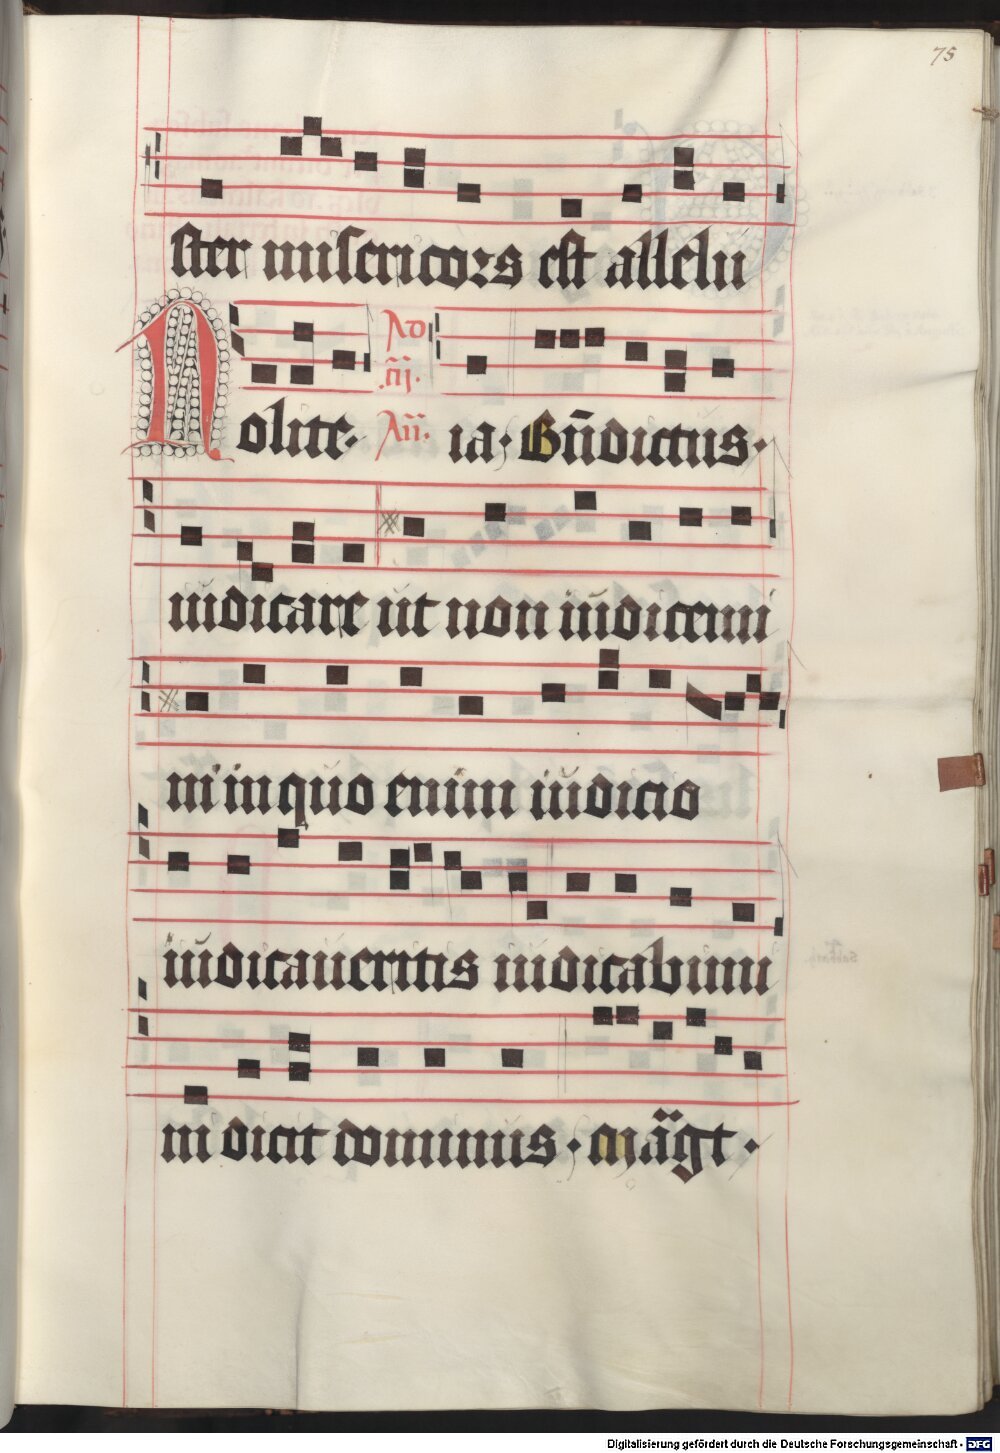 75
ster misericors est allelu
Nolite· Ad m̄j. An̄. ia· Bn̄dictus·
iudicare ut non iudicemi
ni in quo enim iudicio
iudicaueritis iudicabimi
ni dicit dominus· Māgt·
Digitalisierung gefördert durch die Deutsche Forschungsgemeinschaft - DFG